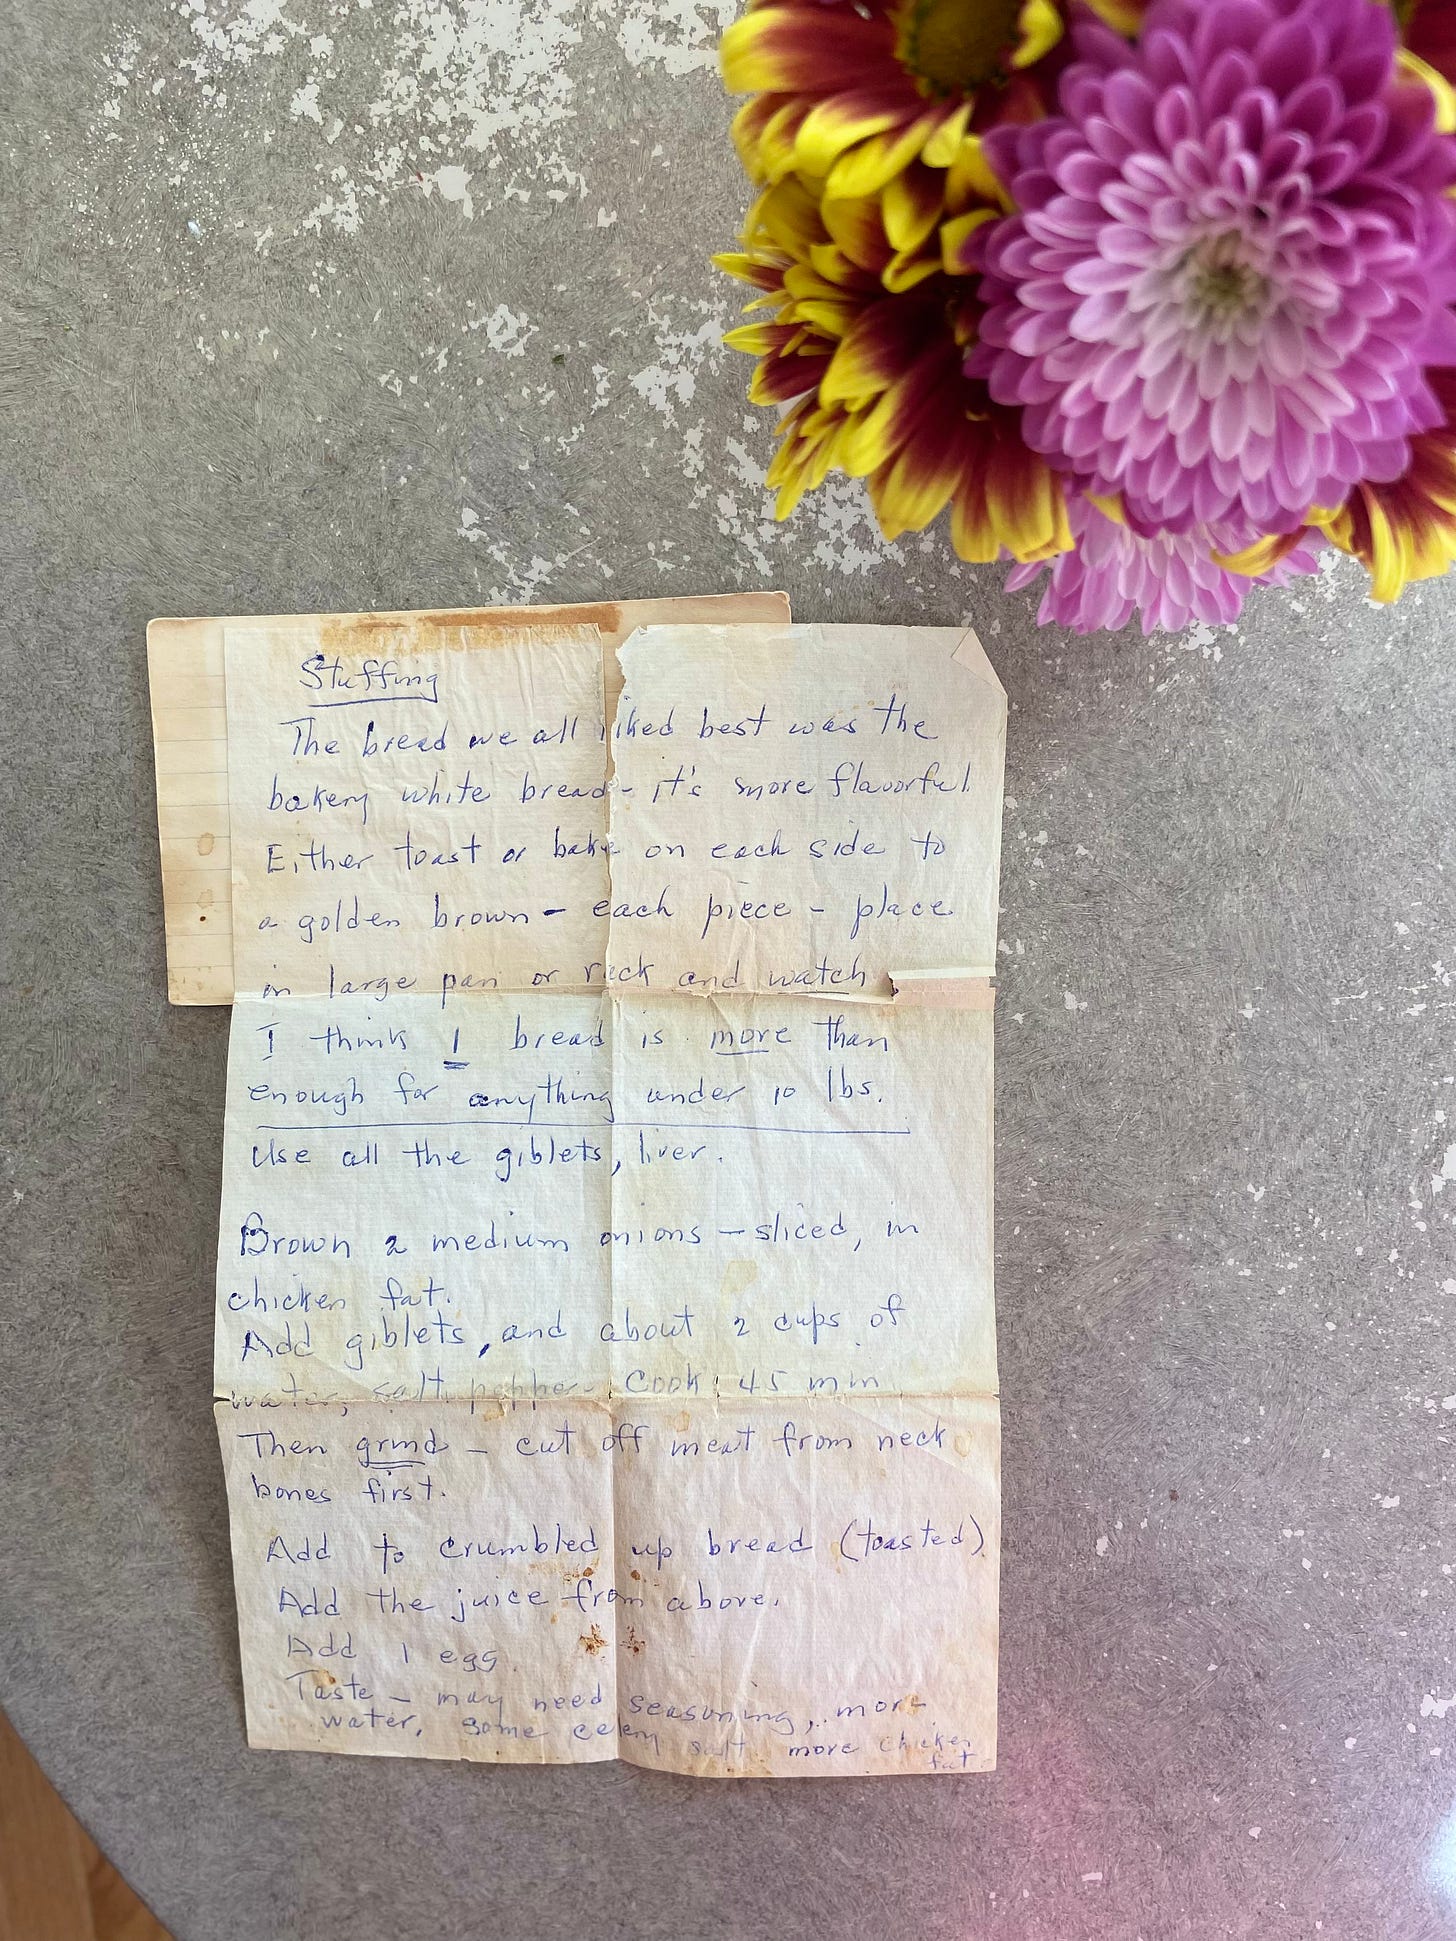 Stuffing
The bread we all liked best was the
bakery white bread - it's more flavorful.
Either toast or bake on each side to
a golden brown - each piece - place
in large pan or rack and watch
I think 1 bread is more than
enough for anything under 10 lbs.
Use all the giblets, liver.
Brown 2 medium onions - sliced, in
chicken fat.
Add giblets, and about 2 cups of
water, salt pepper. Cook 45 min
Then grind - cut off meat from neck
bones first.
Add to crumbled up bread (toasted)
Add the juice from above.
Add 1 egg.
Taste - may need seasoning, more
water. some celery salt more chicken
fat.